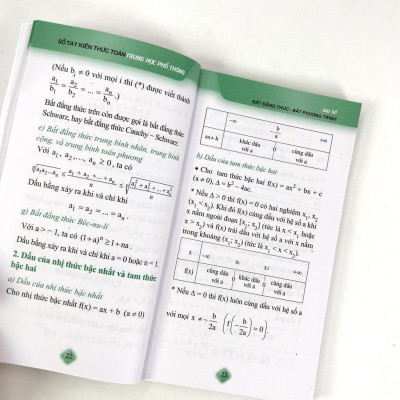 SỔ TAY KIẾN THỨC TOÁN TRUNG HỌC PHỔ THÔNG
(Nếu bᵢ ≠ 0 với mọi i thì (*) được viết thành
a₁/b₁ = a₂/b₂ = ... = aₙ/bₙ.)
Bất đẳng thức trên còn được gọi là bất đẳng thức
Schwarz, hay bất đẳng thức Cauchy – Schwarz.
e) Bất đẳng thức trung bình nhân, trung bình
cộng, và trung bình toàn phương
Với a₁, a₂,..., aₙ ≥ 0, ta có
ⁿ√(a₁a₂...aₙ) ≤ (a₁ + a₂ + ... + aₙ)/n ≤ √((a₁² + a₂² + ... + aₙ²)/n)
Dấu bằng xảy ra khi và chỉ khi
a₁ = a₂ = ... = aₙ.
g) Bất đẳng thức Béc-nu-li
Với a > –1, ta có (1+a)ⁿ ≥ 1+na.
Dấu bằng xảy ra khi và chỉ khi a = 0 hoặc n = 1.
2. Dấu của nhị thức bậc nhất và tam thức
bậc hai
a) Dấu của nhị thức bậc nhất
Cho nhị thức bậc nhất f(x) = ax + b (a ≠ 0)
22
ĐẠI SỐ
BẤT ĐẲNG THỨC - BẤT PHƯƠNG TRÌNH
–∞ –b/a +∞
ax+b khác dấu với a 0 cùng dấu với a
b) Dấu của tam thức bậc hai
• Cho tam thức bậc hai f(x) = ax² + bx + c
(a ≠ 0), Δ = b² – 4ac.
* Nếu Δ > 0 thì f(x) = 0 có hai nghiệm x₁, x₂
(x₁ < x₂). Khi đó f(x) cùng dấu với hệ số a khi x
nằm ngoài đoạn [x₁; x₂] (tức là x < x₁ hoặc
x > x₂) và f(x) trái dấu với hệ số a với x nằm
trong khoảng (x₁; x₂) (tức là x₁ < x < x₂).
x –∞ x₁ x₂ +∞
f(x) cùng dấu với a 0 khác dấu với a 0 cùng dấu với a
* Nếu Δ = 0 thì f(x) luôn cùng dấu với hệ số a
với mọi x ≠ –b/2a (f(–b/2a) = 0).
23